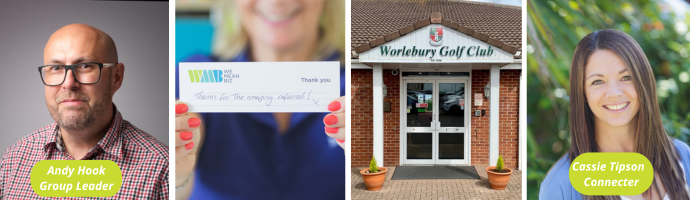 Andy Hook
Group Leader
WMB
WE
MEAN
BIZ
Thank you
Thanks for the amazing referral! x
Worlebury Golf Club
Cassie Tipson
Connecter